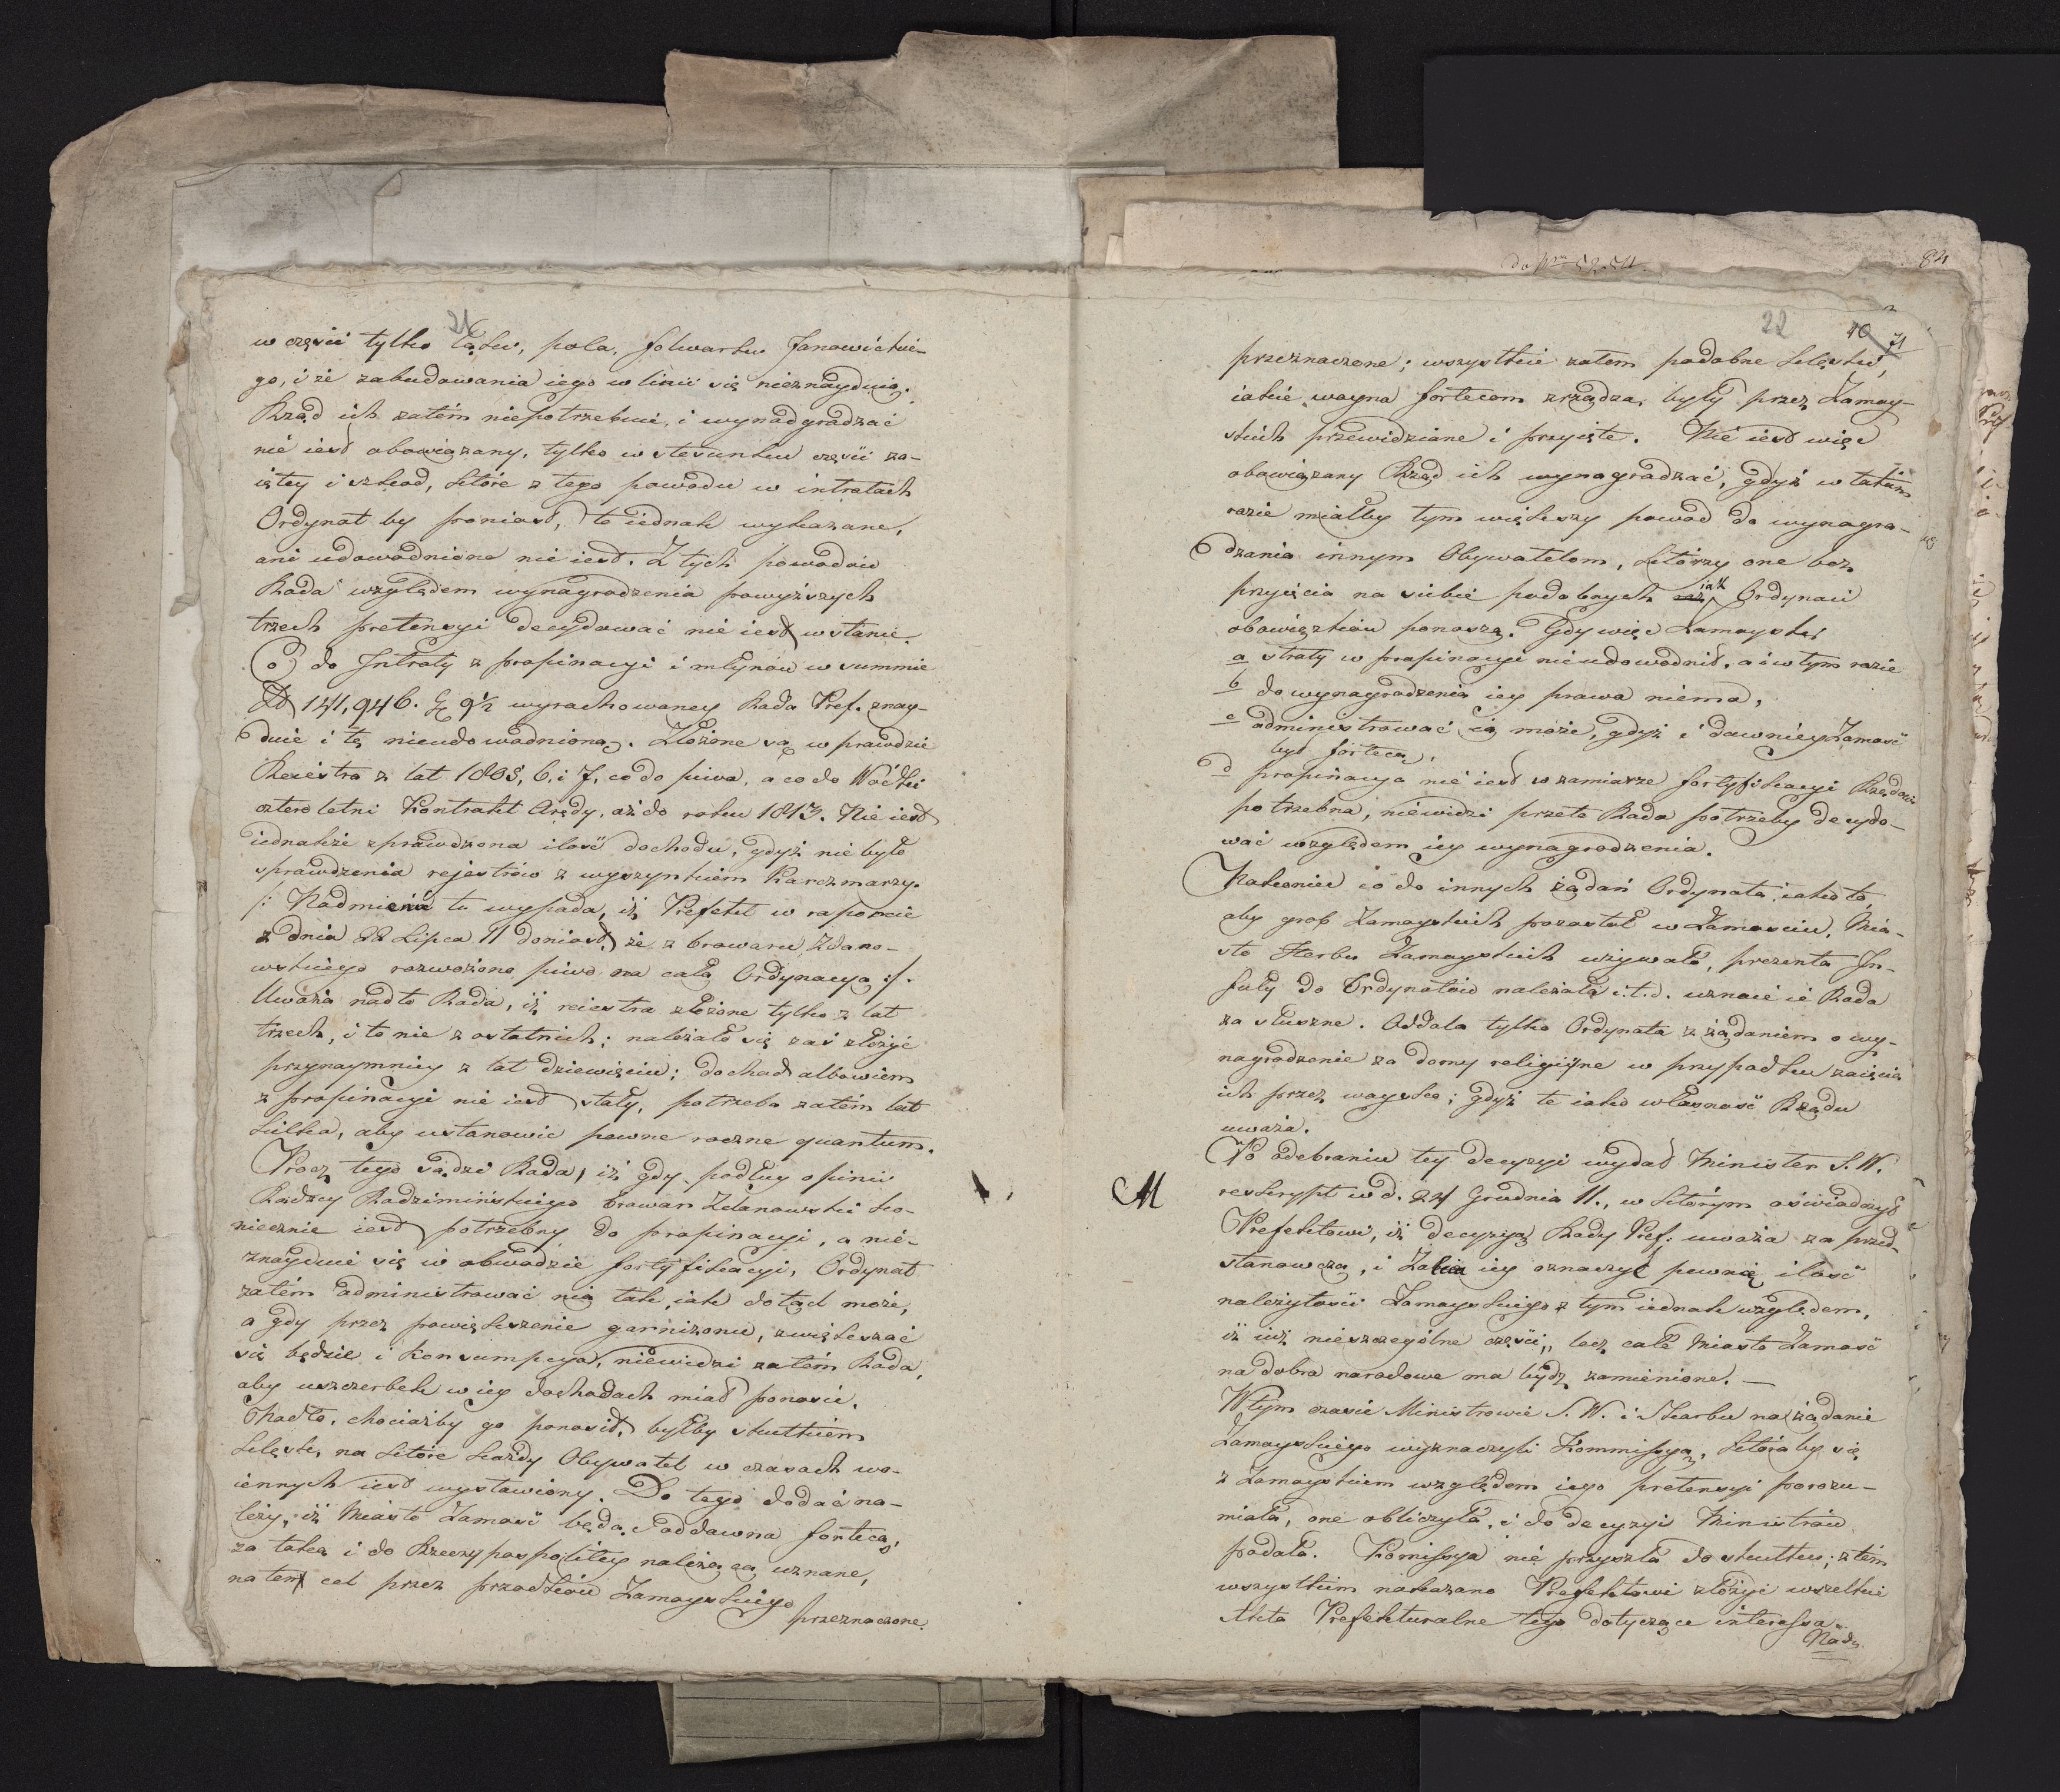 21
w części tylko łąkw, pola, folwarku Janowickie-
go, i że zabudowania iego w linii się nieznayduią.
Rząd ich zatém niepotrzebuie, i wynadgradzać
nié iest obowiązany, tylko w stosunku części za-
iętey i szkod, które z tego powodu w intratach
Ordynat by poniost, to iednak wykazane,
ani udowodnione nie iest. Z tych powodów
Rada względem wynagrodzenia powyższych
trzech pretensyi decydować nie iest w stanie.
Co do Intraty z propinacyi i młynów w summie
141,946. 9½ wyrachowaney Rada Pref. znay-
duie i tę nieudowodnioną. Złożone są w prawdzie
Reiestra z lat 1805, 6, i 7, co do piwa, a co do Wódki
cztero letni Kontrakt Arędy, aż do roku 1813. Nie iest
iednakże sprawdzona ilość dochodu, gdyż nie było
sprawdzenia rejestrów z wyszynkiem Karczmarzy.
/: Nadmienić tu wypada, iż Prefekt w raporcie
z dnia 22 Lipca 11 doniost, że z browaru Zdano-
wskiego rozwożono piwo na całą Ordynacyą :/.
Uważa nadto Rada, iż reiestra złożone tylko z lat
trzech, i to nie z ostatnich; należało się zaś złożyć
przynaymniey z lat dziewięciu; dochod albowiem
z propinacyi nie iest stały, potrzeba zatém lat
kilka, aby ustanowić pewne roczne quantum.
Procz tego sądzi Rada, iż gdy podług opinii
Radzcy Radzimińskiego browar Zdanowski ko-
niecznie iest potrzebny do propinacyi, a nie-
znayduie się w obwodzie fortyfikacyi, Ordynat
zatém administrować nią tak, iak dotąd może,
a gdy przez powiększenie garnizonu, zwiększać
się będzie i Konsumpcya, niewidzi zatém Rada,
aby uszczerbek w iey dochodach miał ponosić.
Nadto, chociażby go ponosił, byłby skutkiem
klęsk, na które każdy Obywatel w czasach wo-
iennych iest wystawiony. Do tego dodać na-
leży, iż Miasto Zamość będąc oddawna fortecą,
za taką i do Rzeczypospolitey należącą uznane,
na ten cel przez przodków Zamoyskiego
przeznaczone.
do Nro 53.54.
84
22
40
21
przeznaczone; wszystkie zatem podobne klęski,
iakie woyna fortecom zrządza, były przez Zamoy-
skich przewidziane i przyięte. Nié iest więc
obowiązany Rząd ich wynagradzać, gdyż w takim
razie miałby tym większy powod do wynagra-
dzania innym Obywatelom, którzy one bez
przyięcia na siebie podobnych iak Ordynaci
obowiązków ponoszą. Gdy więc Zamoyski
a straty w propinacyi nieudowodnił, a i w tym razie
b do wynagrodzenia iey prawa niema,
c administrować ią może, gdyż i dawniey Zamość
był fortecą,
d propinacya nié iest w zamiarze fortyfikacyi Rządowi
potrzebna, niewidzi przeto Rada potrzeby decydo-
wać względem iey wynagrodzenia.
Nakoniec co do innych żądań Ordynata, iako to,
aby grob Zamoyskich pozostał w Zamościu, Mia-
sto Herbu Zamoyskich używało, prezenta In-
fuły do Ordynatów należała i.t.d. uznaie ie Rada
za słuszne. Oddala tylko Ordynata z żądaniem o wy-
nagrodzenie za domy religiyne w przypadku zaięcia
ich przez woysko; gdyż te iako własność Rządu
uważa.
M
Po odebraniu tey decyzyi wydał Minister S. W.
reskrypt w d. 24 Grudnia 11., w którym oświadczył
Prefektowi, iż decyzyą Rady Pref: uważa za przed-
stanowczą, i Zaleca iey oznaczyć pewnie ilość
należytości Zamoyskiego z tym iednak względem,
iż iuż nieszczególne części, lecz całe Miasto Zamość
na dobra narodowe ma bydz zamienione. —
W tym czasie Ministrowie S. W. i Skarbu na żądanie
Zamoyskiego wyznaczyli Kommissyą, któraby się
z Zamoyskim względem iego pretensyi porozu-
miała, one obliczyła, i do decyzyi Ministrów
podała. Komissya nie przyszła do skutku; z tém
wszystkim nakazano Prefektowi złożyć wszelkie
Akta Prefekturalne tego dotyczące interessa.
Nad